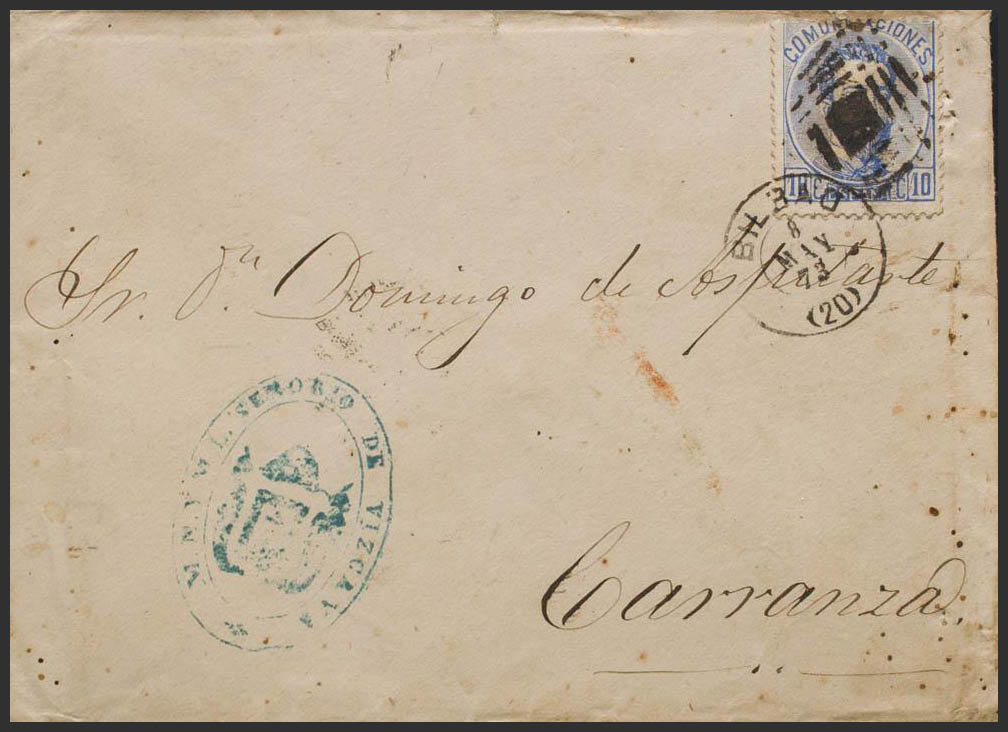 COMUNICACIONES
10 C 10
BILBAO
8
MAY
73
(20)
Sr. Dn Domingo de
SEÑORIO DE VIZCAYA
Carranza.